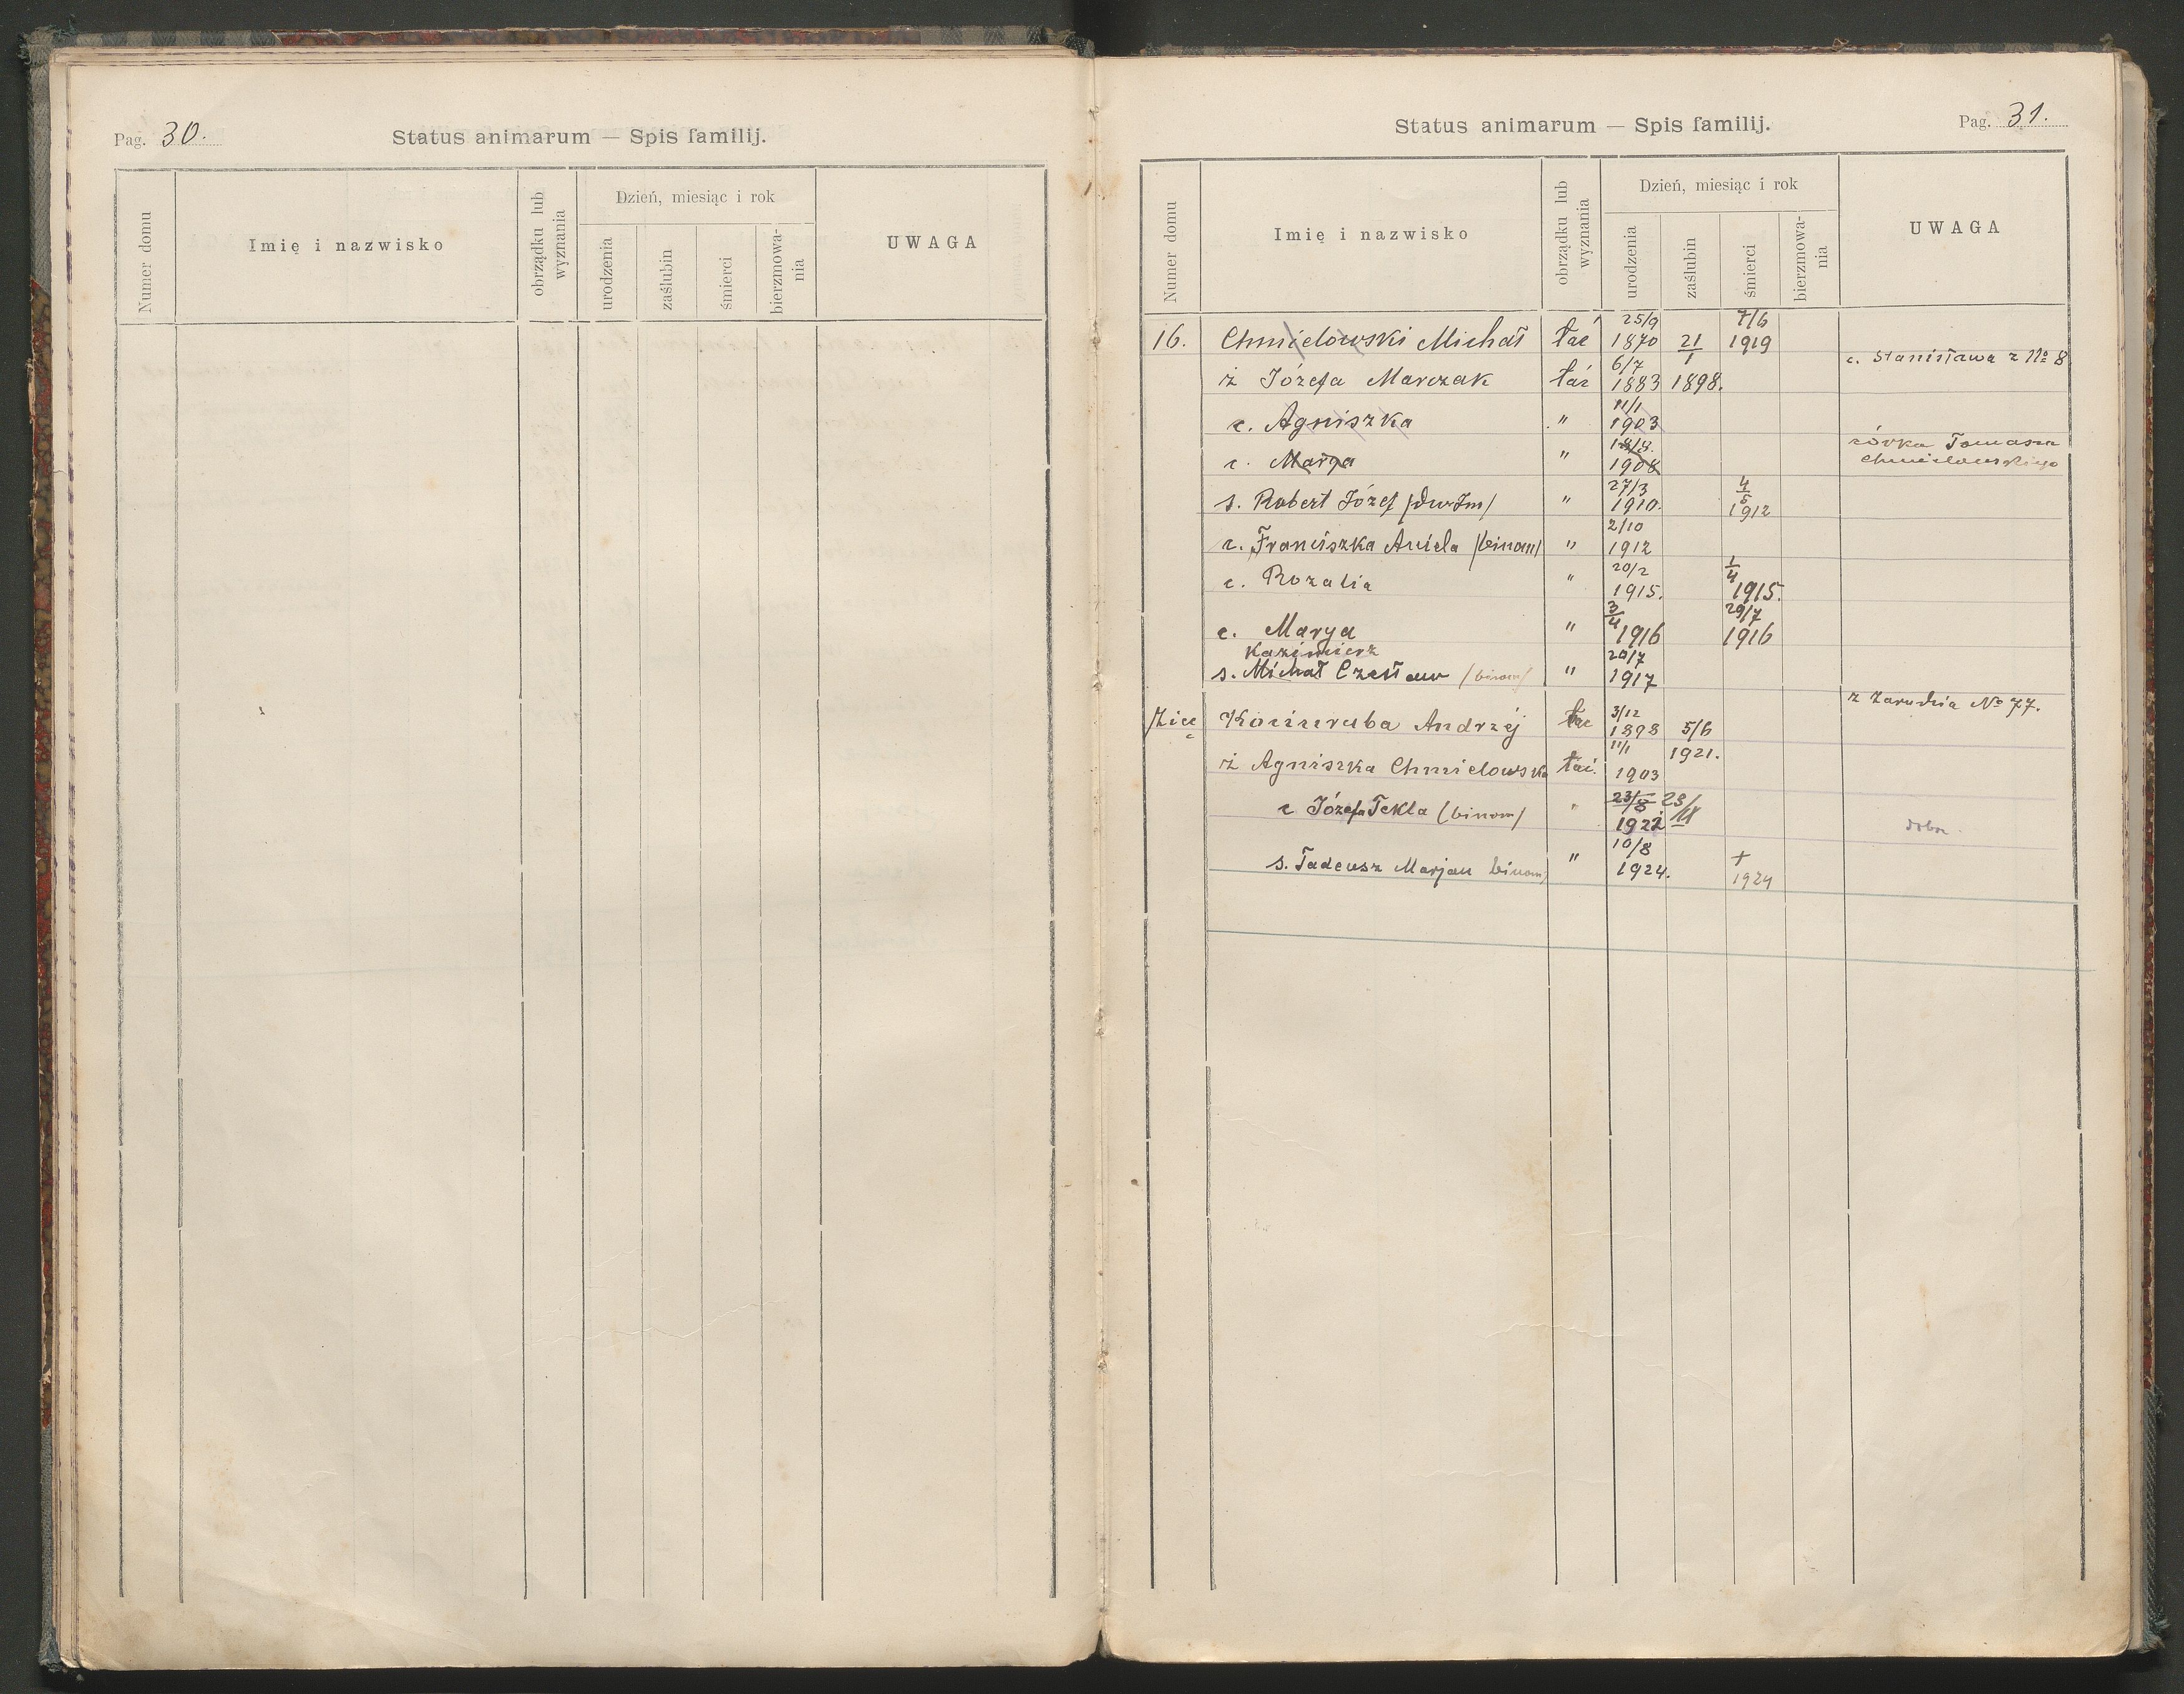 Pag. 30.
Status animarum — Spis familij.
Numer domu
Imię i nazwisko
obrządku lub wyznania
Dzień, miesiąc i rok
urodzenia
zaślubin
śmierci
bierzmowa-
nia
UWAGA
Status animarum — Spis familij.
Pag. 31.
Numer domu
Imię i nazwisko
obrządku lub wyznania
Dzień, miesiąc i rok
urodzenia
zaślubin
śmierci
bierzmowa-
nia
UWAGA
16. Chmielowski Michał łać 25/9 1870 21/1 7/6 1919
ż Józefa Marczak łać 6/7 1883 1898. c. Stanisława z No 8
c. Agniszka " 11/1 1903
c. Marya " 18/8. 1908 córka Tomasza Chmielowskiego
s. Robert Józef " 27/3 1910. 4/5 1912
c. Franciszka Aniela /binom/ " 2/10 1912
c. Rozalia " 20/2 1915. 1/4 1915.
c. Marya " 3/4 1916 29/7 1916
Kazimierz
s. Michał Czesław /binom/ " 20/7 1917
Andrzéj łac 3/12 1898 5/6 z Zarudzia No 77.
ż Agniszka Chmielowska łać. 11/1 1903 1921.
c Józefa Tekla (binom/ " 23/8 1922 23/IX
s. Tadeusz Marjan binom/ " 10/8 1924. + 1924